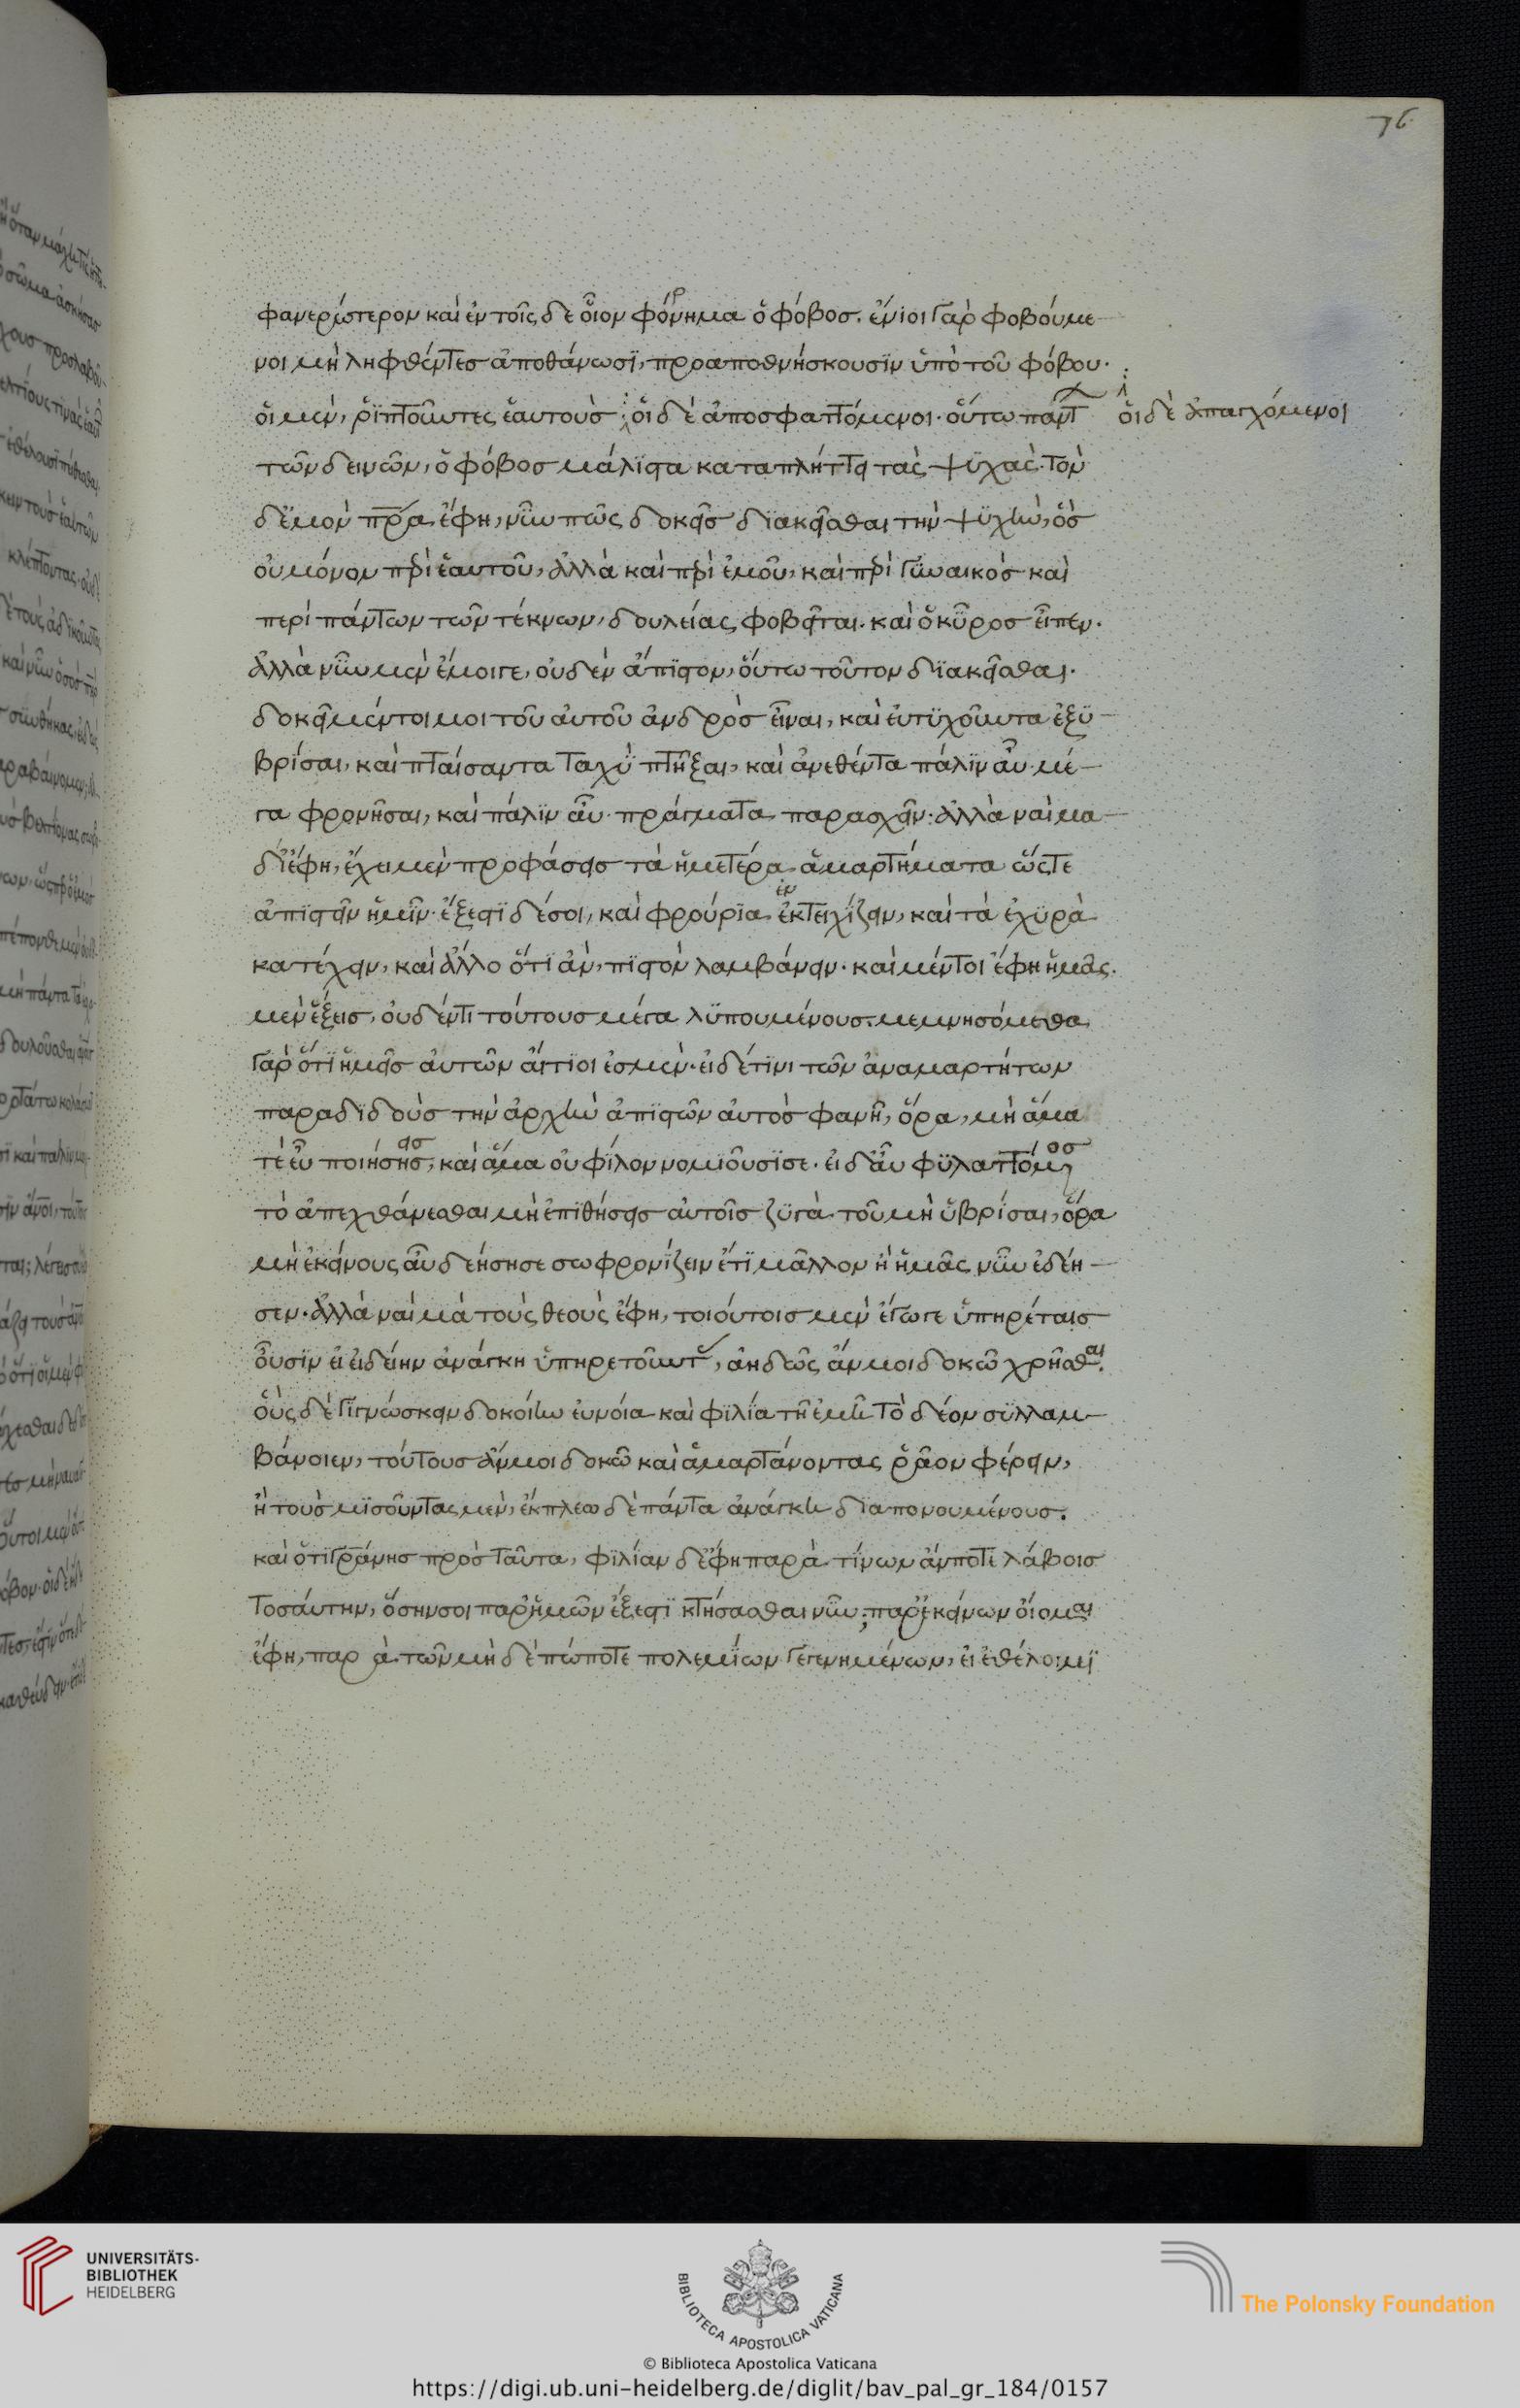 76
φανερώτερον καὶ ἐν τοῖς δε οἷον φόρνημα ὁ φόβοσ. ἔνϊοι γὰρ φοβούμε
νοι μὴ ληφθέντεσ ἀποθάνωσϊ, προαποθνήσκουσϊν ὑπὸ τοῦ φόβου.
οἱ μὲν, ῥϊπτοῦντες ἑαυτοὺσ οἱ δὲ ἀποσφαττόμενοι. οὕτω πάντ
οἱ δὲ ἀπαγχόμενοι
τῶν δεινῶν, ὁ φόβοσ μάλϊστα καταπλήττει τὰς ψϋχάς. τὸν
δ' ἐμὸν πρ̅α ἔφη, νῦν πῶς δοκεῖσ δϊακεῖσθαι τὴν ψϋχὴν, ὃσ
οὐ μόνον περὶ ἑαυτοῦ, ἀλλὰ καὶ περὶ ἐμοῦ, καὶ περὶ γϋναικὸσ καὶ
περὶ πάντων τῶν τέκνων, δουλείας φοβεῖται. καὶ ὁ κῦροσ εἶπεν.
ἀλλὰ νῦν μὲν ἔμοιγε, οὐδὲν ἄπϊστον, οὕτω τοῦτον δϊακεῖσθαι.
δοκεῖ μέντοι μοι τοῦ αὐτοῦ ἀνδρὸσ εἶναι, καὶ εὐτϋχοῦντα ἐξϋ
βρίσαι, καὶ πταίσαντα ταχὺ πτῆξαι, καὶ ἀνεθέντα πάλϊν αὖ μέ
γα φρονῆσαι, καὶ πάλϊν αὖ πράγματα παρασχεῖν. ἀλλὰ ναὶ μα
δί' ἔφη, ἔχει μὲν προφάσεισ τὰ ἡμετέρα ἁμαρτήματα ὥςτε
ἀπϊστεῖν ἡμῖν. ἔξεστϊ δέ σοι, καὶ φρούρϊα ἐκτειχίζειν, καὶ τὰ ἐχϋρὰ
ἐν
κατέχειν, καὶ ἄλλο ὅτϊ ἂν, πϊστὸν λαμβάνειν. καὶ μέντοι ἔφη ἡμᾶς
μὲν ἕξεισ, οὐδέν τι τούτουσ μέγα λϋπουμένουσ. μεμνησόμεθα
γὰρ ὅτϊ ἡμεῖσ αὐτῶν αἴτϊοι ἐσμὲν. εἰ δέ τϊνι τῶν ἀναμαρτήτων
παραδϊδοὺσ τὴν ἀρχὴν ἀπϊστῶν αὐτὸσ φανῆ, ὅρα, μὴ ἅμα
τὲ εὖ ποιήσησ, καὶ ἅμα οὐ φίλον νομιοῦσϊ σε. εἰ δ' αὖ φϋλαττόμενοσ
εισ
τὸ ἀπεχθάνεσθαι μὴ ἐπϊθήσεισ αὐτοῖσ ζϋγὰ τοῦ μὴ ὑβρίσαι, ὅρα
μὴ ἐκείνους αὖ δεήσησε σωφρονίζειν ἔτϊ μᾶλλον ἢ ἡμᾶς νῦν ἐδέη
σεν. ἀλλὰ ναὶ μὰ τοὺς θεοὺς ἔφη, τοιούτοισ μὲν ἔγωγε ὑπηρέταισ
οὖσϊν εἰ εἰδείην ἀνάγκη ὑπηρετοῦντ, ἀηδῶς ἄν μοι δοκῶ χρῆσθαι.
οὓς δὲ γϊγνώσκειν δοκοίην εὐνοία καὶ φϊλία τῆ ἐμῆ τὸ δέον σϋλλαμ
βάνοιεν, τούτουσ ἄν μοι δοκῶ καὶ ἁμαρτάνοντας ῥᾶον φέρειν,
ἢ τοὺσ μϊσοῦντας μὲν, ἔκπλεω δὲ πάντα ἀνάγκη δϊαπονουμένουσ.
καὶ ὁ τϊγράνησ πρὸσ ταῦτα, φϊλίαν δ' ἔφη παρὰ τίνων ἄν ποτε λάβοισ
τοσαύτην, ὅσην σοι παρ' ἡμῶν ἔξεστϊ κτήσασθαι νῦν; παρ' ἐκείνων οἴομαι
ἔφη, παρὰ τῶν μὴ δὲ πώποτε πολεμίων γεγενημένων, εἰ ἐθέλοιμϊ
UNIVERSITÄTS-
BIBLIOTHEK
HEIDELBERG
BIBLIOTECA APOSTOLICA VATICANA
The Polonsky Foundation
© Biblioteca Apostolica Vaticana
https://digi.ub.uni-heidelberg.de/diglit/bav_pal_gr_184/0157